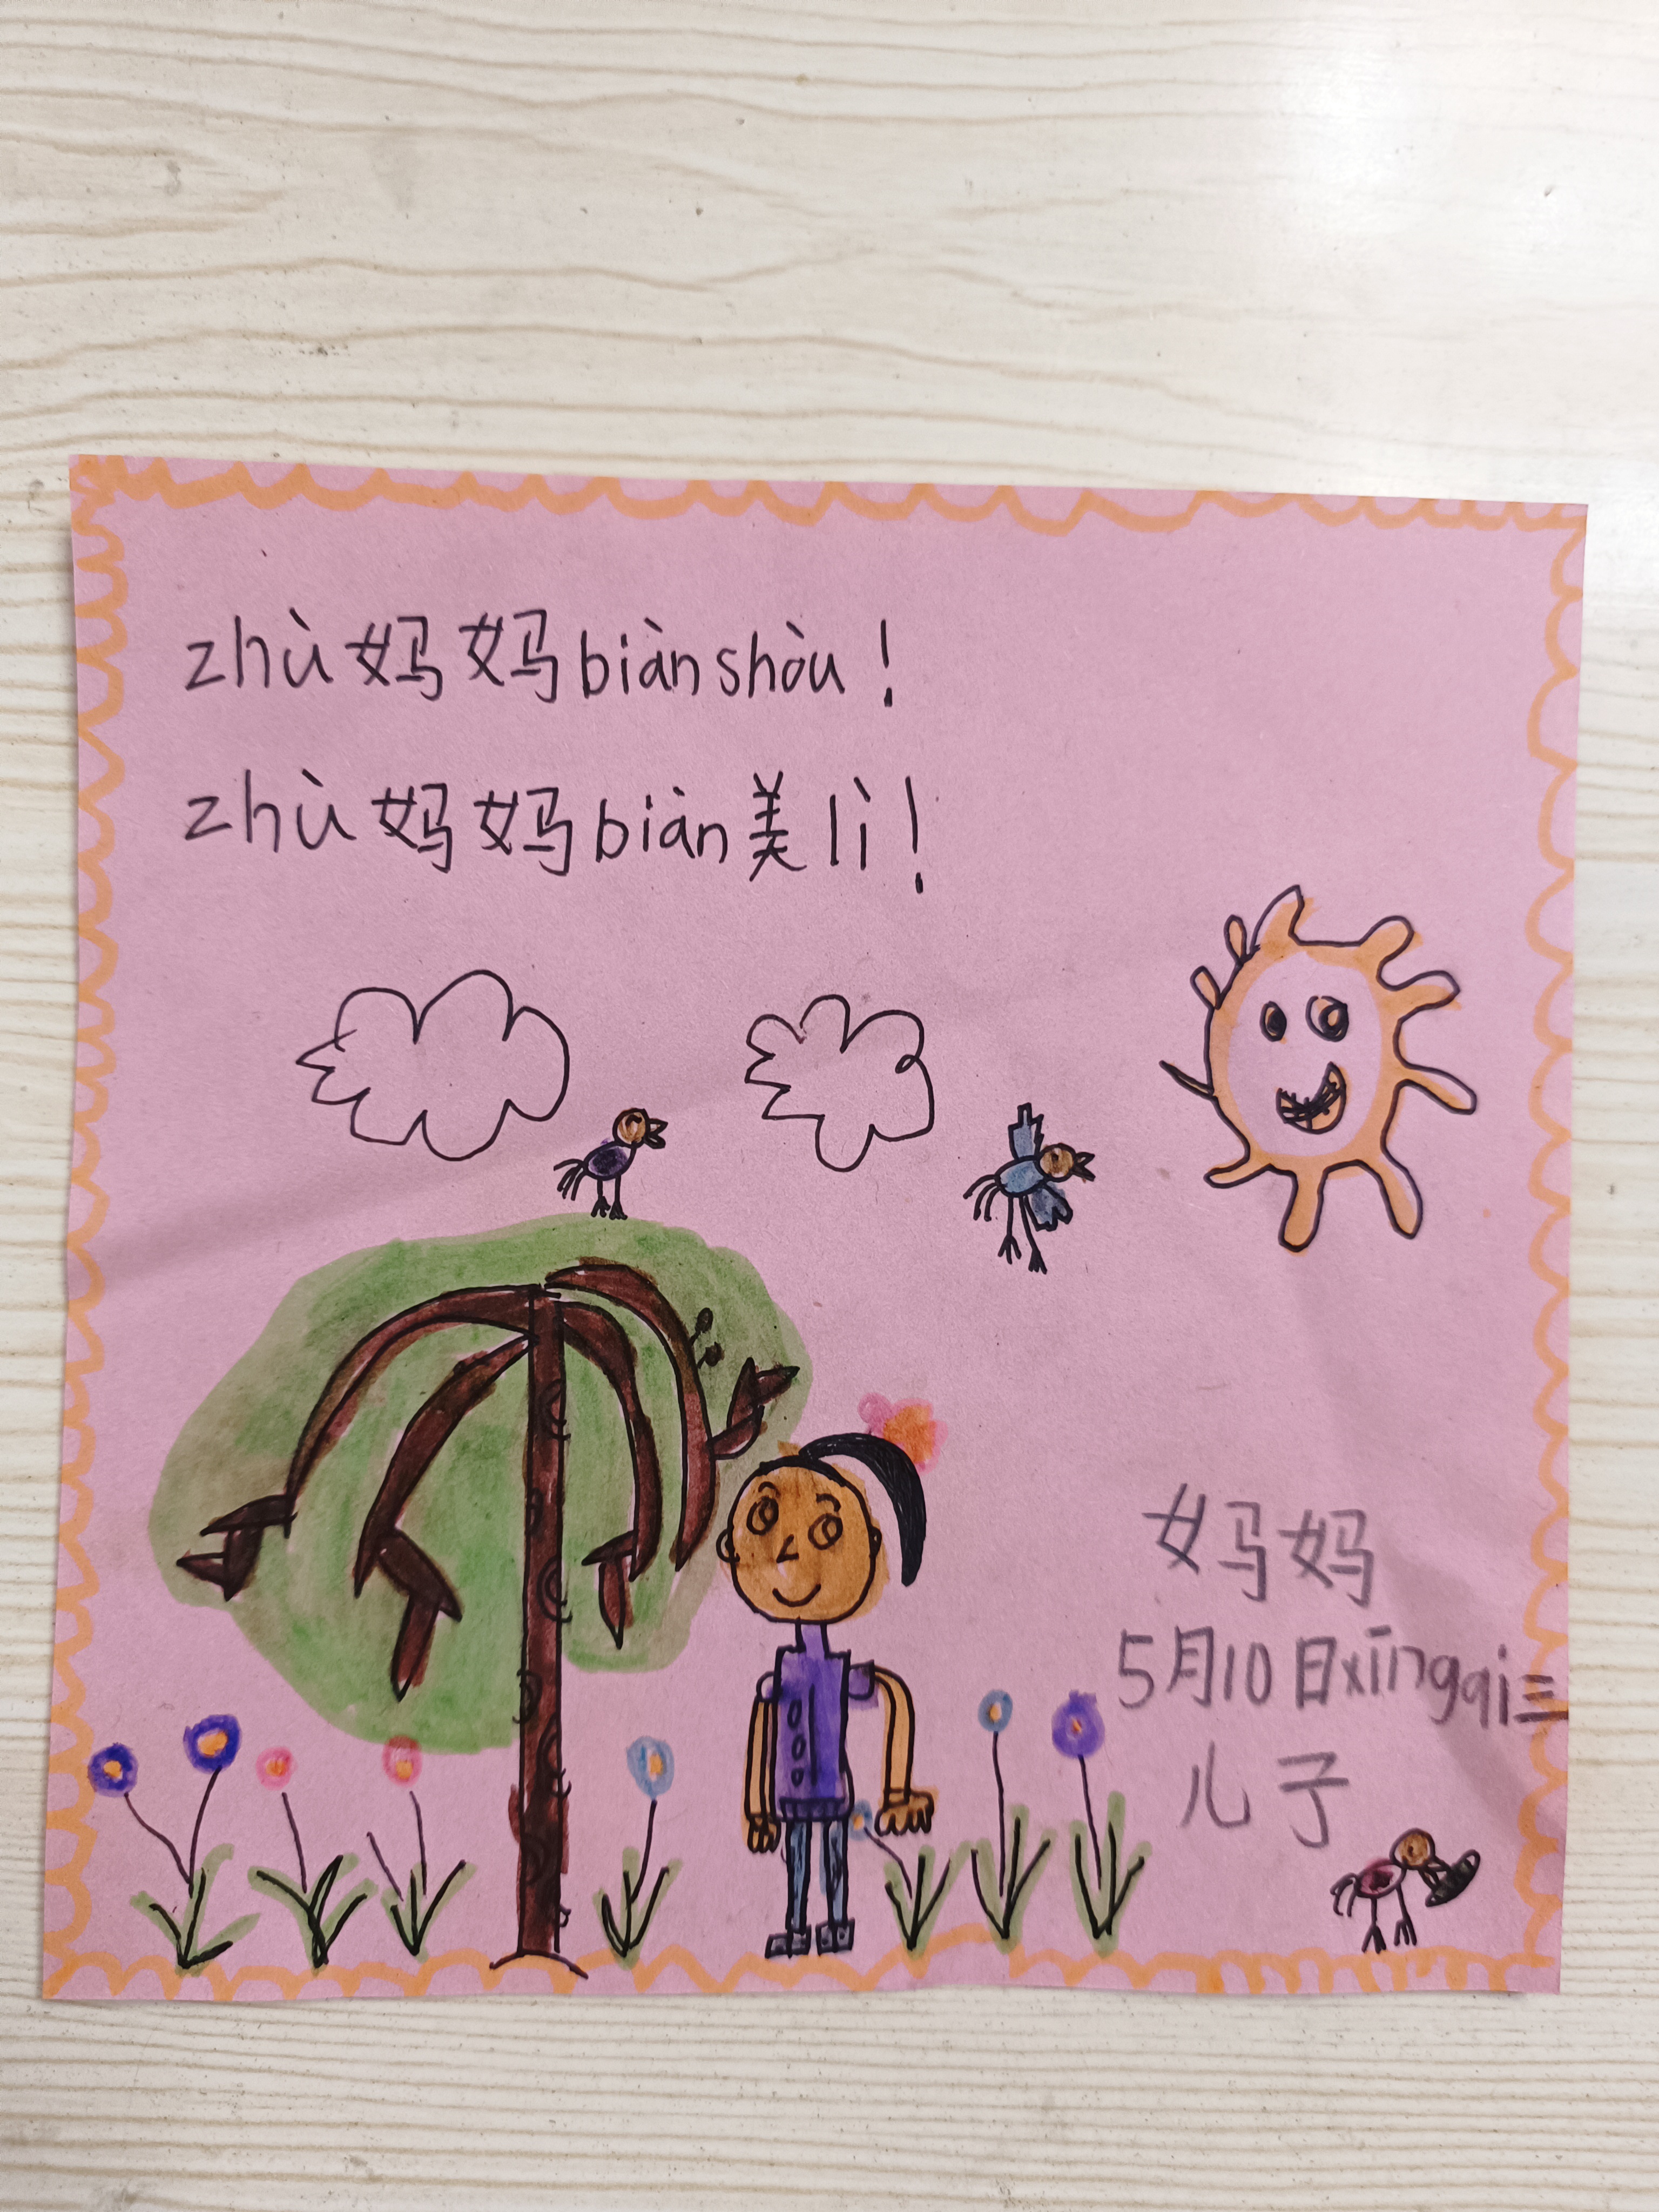 zhù妈妈biànshòu！
zhù妈妈biàn美lì！
妈妈
5月10日xīngqi三
儿子